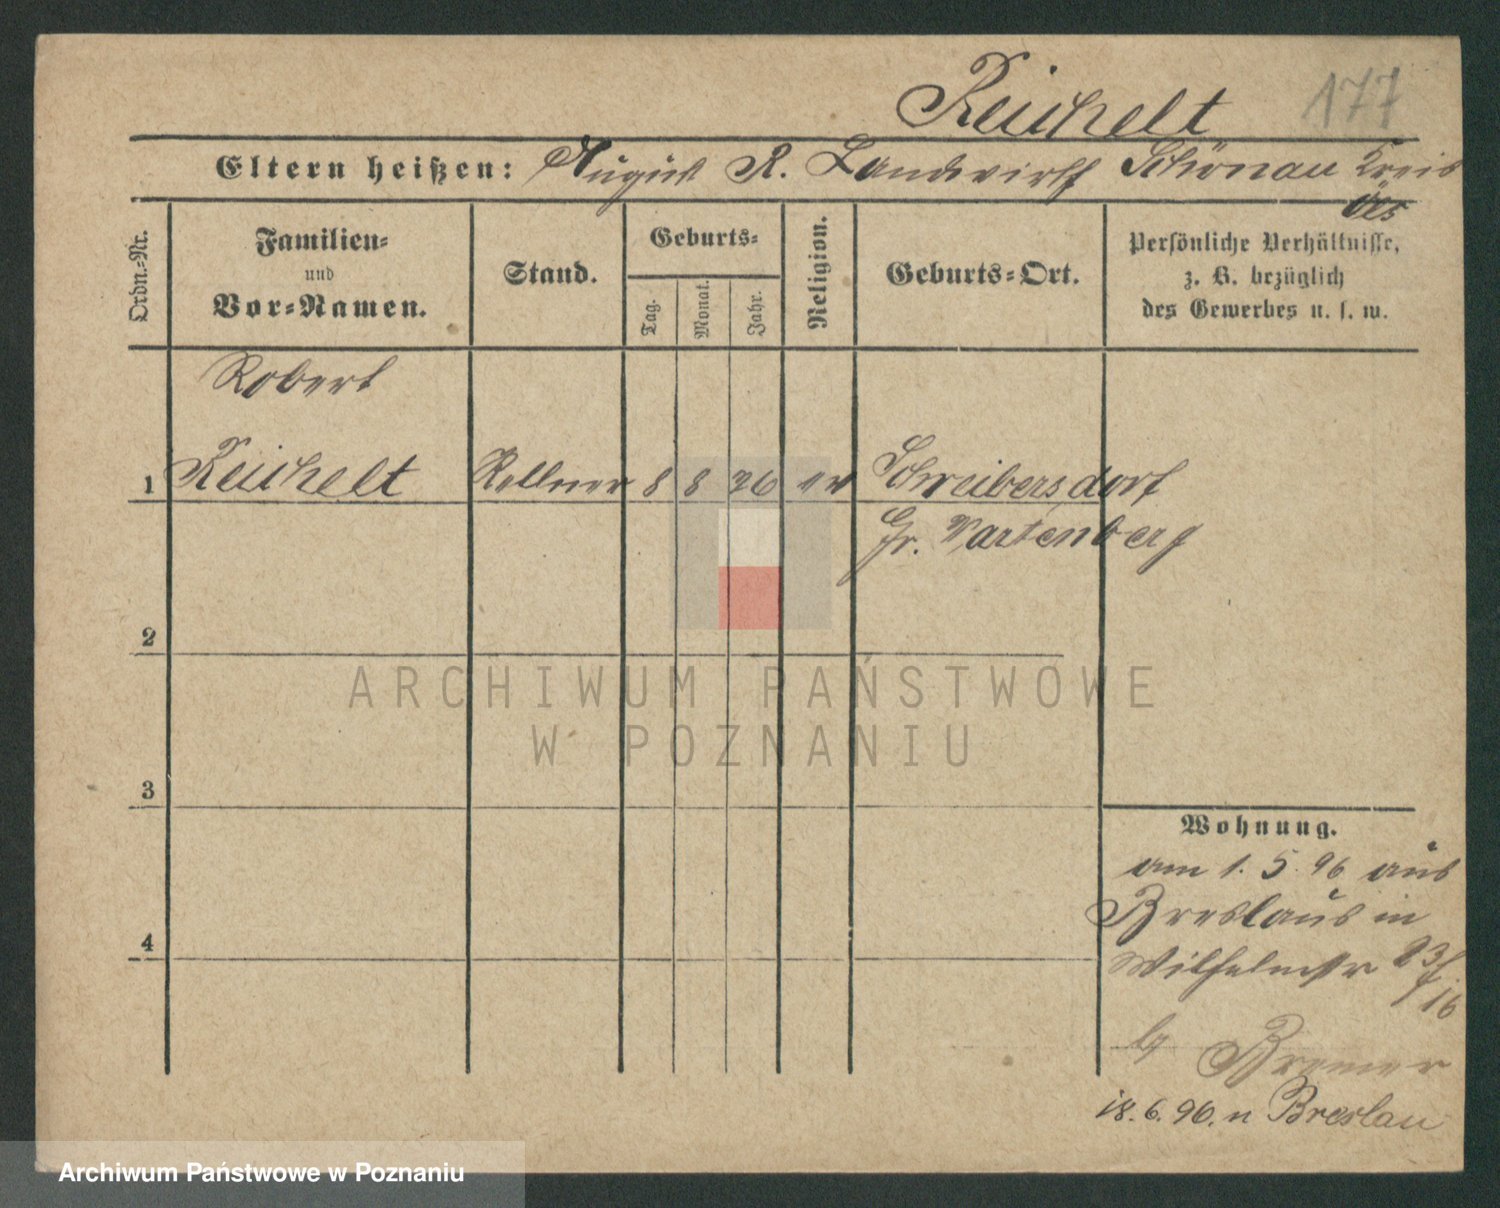 Reichelt 177
Eltern heißen: August R. Landwirth Schönau Kreis
Öls
Ordn.-Nr.
Familien-
und
Vor-Namen.
Stand.
Geburts-
Tag.
Monat.
Jahr.
Religion.
Geburts-Ort.
Persönliche Verhältnisse,
z. B. bezüglich
des Gewerbes u. s. w.
Robert
1 Reichelt Kellner 8 8 76 ev Schreibersdorf
Gr. Wartenberg
2
3
4
Wohnung.
am 1. 5. 96 aus
Breslau in
Wilhelmstr 23/
16
bg Bremer
18. 6. 96. n Breslau
ARCHIWUM PAŃSTWOWE
W POZNANIU
Archiwum Państwowe w Poznaniu